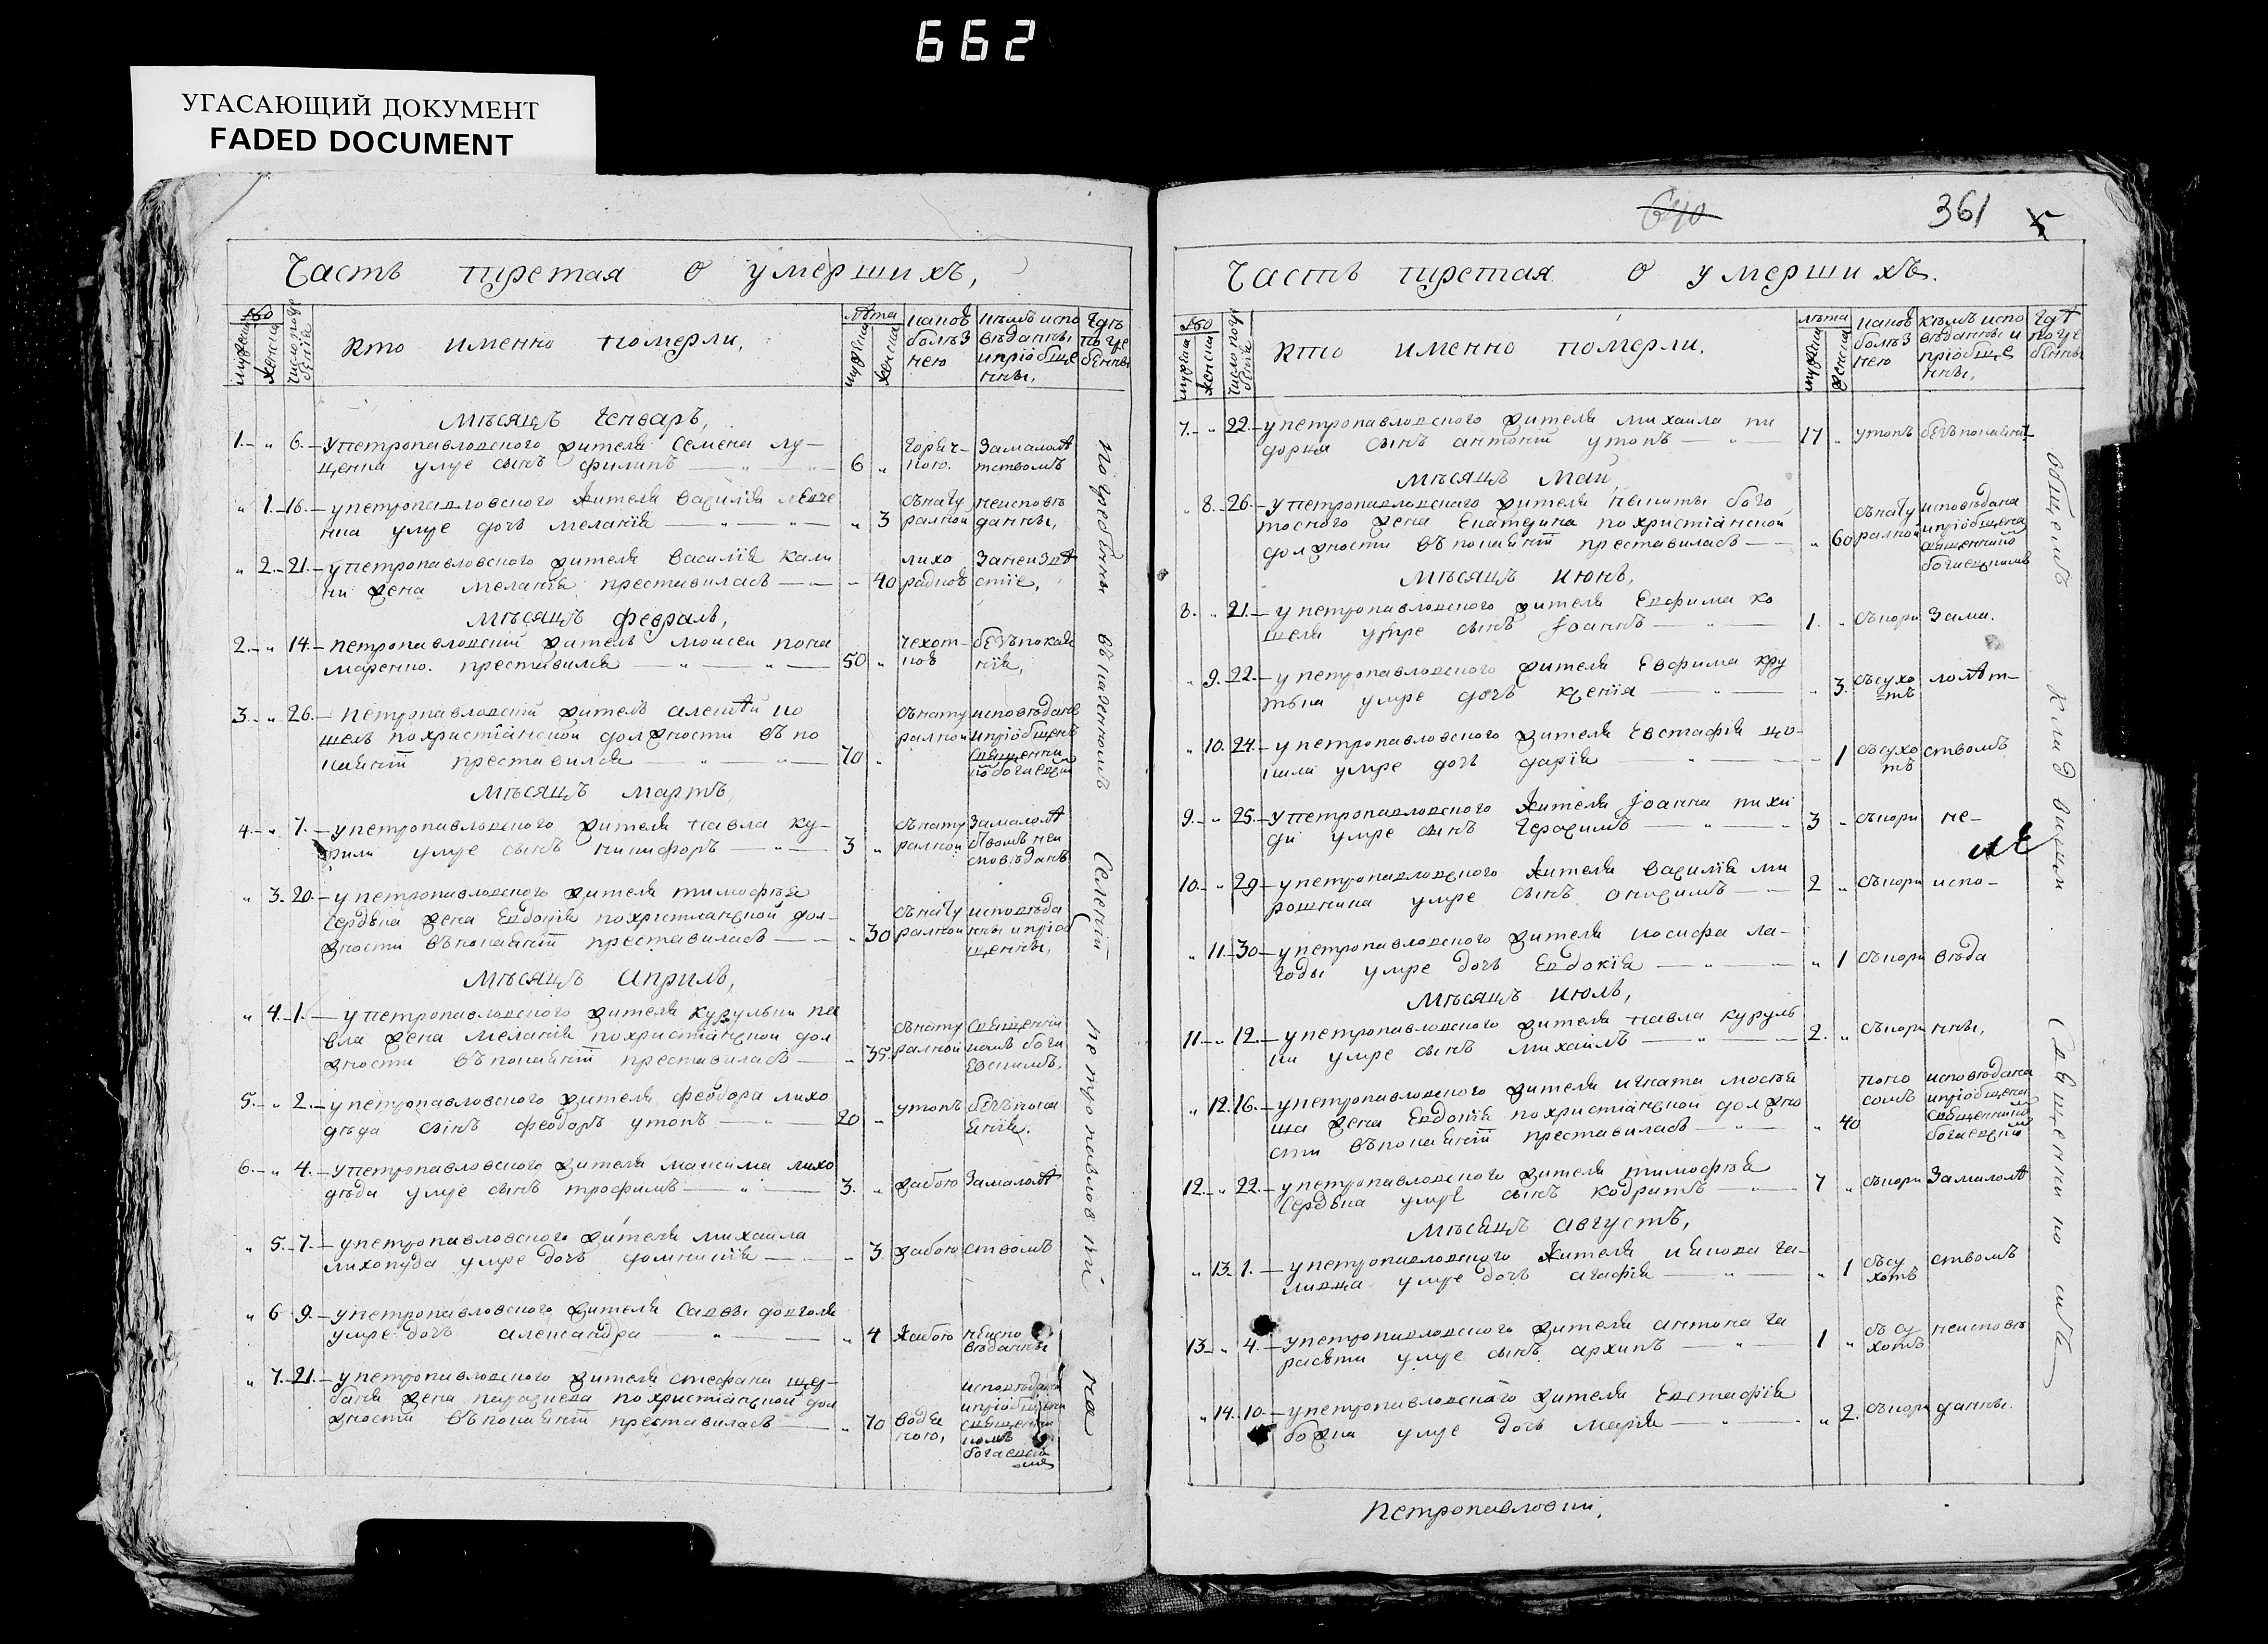 662
УГАСАЮЩИЙ ДОКУМЕНТ
FADED DOCUMENT
Часть третая о умершихъ,
Кто именно померли,
лѣта
какою болѣзнею
кѣмъ исповѣданны, и пріобщенны,
Гдѣ погребенны
Мѣсяцъ Генваръ,
1. " 6. У петропавловского жителя Семена Лу-
ценка умре сынъ филипъ 6 " горяч-кою. За малолѣтствомъ
" 1. 16. у петропавловского жителя Василія
умре дочъ Меланія " 3 съ натуралной неисповѣданны,
" 2. 21. у петропавловского жителя Василія Кали
ни жена Меланія преставиласъ 40 лихорадков
Мѣсяцъ февралъ,
2. " 14. петропавловскій жителъ Моисей пона
маренко. преставился 50 " чехоткоѣ безъ покаянія,
3. " 26. Петропавловскій жителъ алеѯѣй ко
шелъ по христіанской должности въ по
каяніи преставился 70 " съ натуралной исповѣданъ и пріобщенъ
Мѣсяцъ Мартъ,
4. " 7. у петропавловского жителя павла ку-
рили умре сынъ никифоръ 3 " съ натуралной За малолѣтствомъ неисповѣданъ
" 3. 20. у петропавловского жителя тимофѣя
Сердюка жена Евдокія по христианской дол-
жности въ покаяніи преставиласъ " 30 съ натуралной исповѣданны и пріобщенны,
Мѣсяцъ Априлъ,
" 4. 1. у петропавловского жителя Курулъки па
вла жена Меланія по христіанской дол
жности въ покаяніи преставиласъ " 35 съ натуралной
5. " 2. у петропавловского жителя феодора лихо
дѣда сынъ феодоръ утопъ 20 " утопъ безъ покаянія.
6. " 4. У петропавловского жителя Максима лихо
дѣда умре сынъ трофимъ 3. " жабою За малолѣт
" 5. 7. у петропавловского жителя Михаила
лихопуда умре дочъ домникія " 3 жабою ствомъ
" 6 9. у петропавловского жителя Саввы довголя
умре дочъ александра " 4 жабою неисповѣданны
" 7. 21. у петропавловского жителя стефана щер-
баня жена параскева по христіанской дол
жности въ покаяніи преставиласъ " 70 водяною,
Погребенны въ казенномъ Селеніи Петропавловки на
640
361
Часть третая о умершихъ.
Кто именно померли.
лѣта
какою болѣзнею
кѣмъ исповѣданны и пріобщенны,
Гдѣ погребенны
7. " 22. у петропавловского жителя михаила пи
дорки сынъ антоній утопъ 17 " утопъ безъ покаяній
Мѣсяцъ Май,
8. 26. у петропавловского жителя никиты бого
тоского жена Екатерина по христіанской
должности въ покаяніи преставиласъ " 60 съ натуралной исповѣдана и пріобщена
Мѣсяцъ июнь,
8. " 21. у петропавловского жителя Евфима ко
шеля умре сынъ Іоаннъ 1. " съ кори За ма.
" 9. 22. у петропавловского жителя Евфима кру
тька умре дочъ Ксенія " 3. съ сухотъ лолѣт-
" 10. 24. у петропавловского жителя Евстафія що-
кала умре дочъ дарія 1 съ сухотъ ствомъ
9. " 25. у петропавловского жителя Іоанна
умре сынъ Герасимъ 3 " съ кори не-
10. " 29. у петропавловского жителя Василія ми
рошника умре сынъ онисимъ 2 " съ кори испо-
" 11. 30. у петропавловского жителя иосифа ла-
годы умре дочъ Евдокія " 1 съ кори вѣда
Мѣсяцъ июль,
11. " 12. у петропавловского жителя павла куруль
ки умре сынъ Михаилъ 2. " съ кори нны,
" 12. 16. у петропавловского жителя игната мосѣя
ша жена Евдокія по христіанской должно
сти въ покаяніи преставиласъ " 40 поносомъ исповѣдана и пріобщена
12. " 22. у петропавловского жителя тимофѣя
Сердюка умре сынъ кодратъ 7 " съ кори За малолѣт
Мѣсяцъ августъ,
" 13. 1. у петропавловского жителя иякова га-
ливка умре дочъ агафія " 1 съ сухотъ ствомъ
13. " 4. у петропавловского жителя антона га
расюти умре сынъ архипъ 1 " съ сухотъ неисповѣ
" 14. 10. у петропавловского жителя Евстафія
божка умре дочъ Марія " 2. съ кори данны.
общемъ кладбищи
Петропавловки,